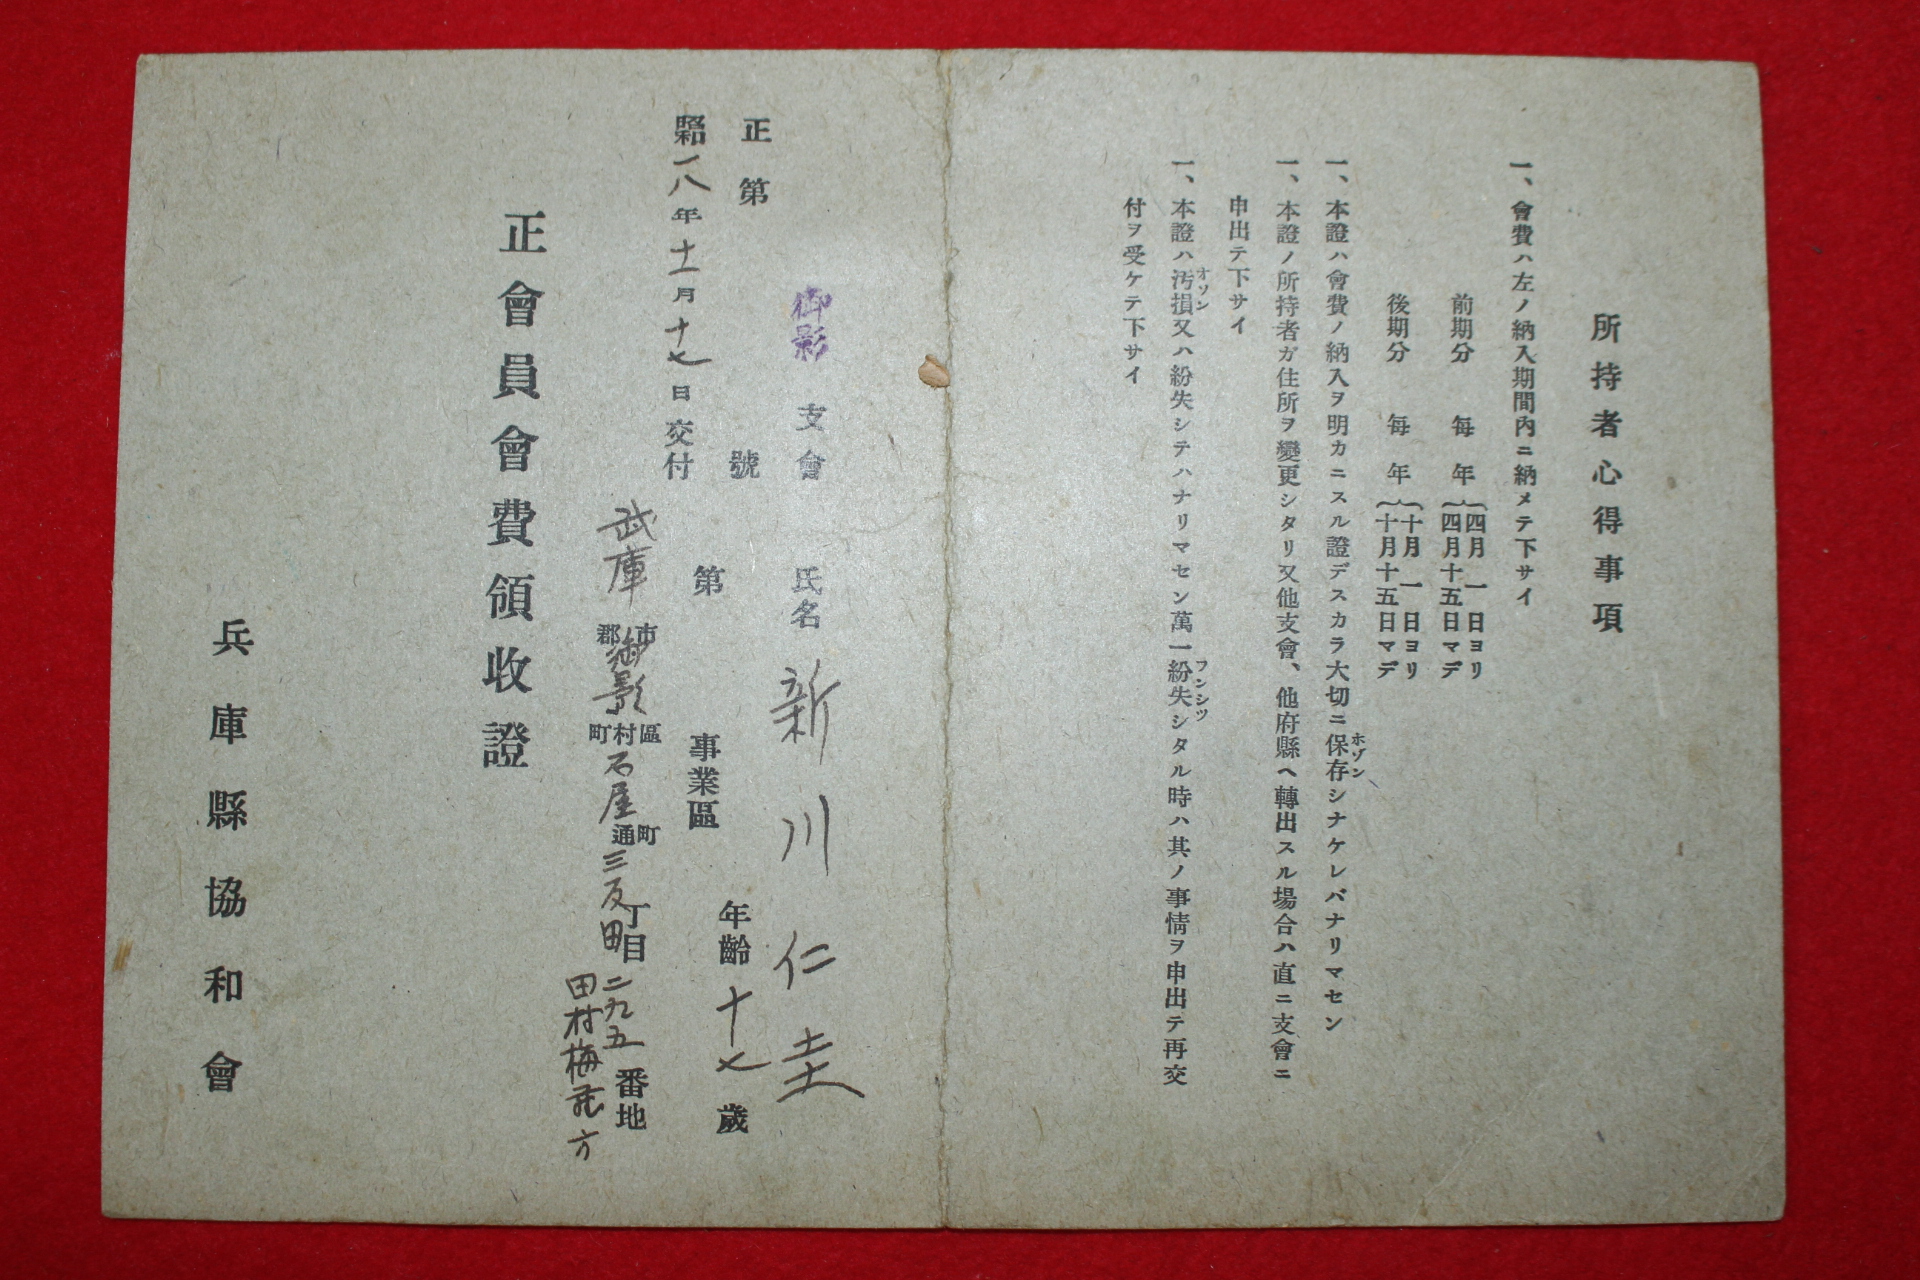 所持者心得事項
一、會費ハ左ノ納入期間內ニ納メテ下サイ
前期分 每年 四月一日ヨリ
四月十五日マデ
後期分 每年 十月一日ヨリ
十月十五日マデ
一、本證ハ會費ノ納入ヲ明カニスル證デスカラ大切ニ保存シナケレバナリマセン
ホゾン
一、本證ノ所持者ガ住所ヲ變更シタリ又他支會、他府縣ヘ轉出スル場合ハ直ニ支會ニ
申出テ下サイ
一、本證ハ汚損又ハ紛失シテハナリマセン萬一紛失シタル時ハ其ノ事情ヲ申出テ再交
オソン
フンシツ
付ヲ受ケテ下サイ
御影 支會 氏名 新川仁圭
正第 號 年齡 十七 歲
第 事業區
昭和一八年十一月十七日交付
武庫 市郡 御影 區村町 石屋 町通 三反田 丁目 二九五 番地
田村梅 方
正會員會費領收證
兵庫縣協和會